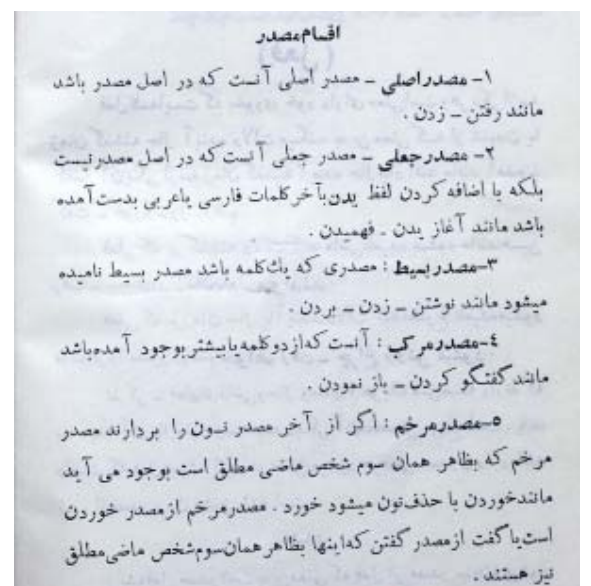 اقسام مصدر
۱- مصدر اصلی ـ مصدر اصلی آنست که در اصل مصدر باشد
مانند رفتن ـ زدن .
۲- مصدر جعلی ـ مصدر جعلی آنست که در اصل مصدر نیست
بلکه با اضافه کردن لفظ یدن بآخر کلمات فارسی یا عربی بدست آمده
باشد مانند آغاز یدن ـ فهمیدن .
۳-مصدر بسیط : مصدری که یك کلمه باشد مصدر بسیط نامیده
میشود مانند نوشتن ـ زدن ـ بردن .
٤-مصدر مرکب : آنست که از دو کلمه یا بیشتر بوجود آمده باشد
مانند گفتگو کردن ـ باز نمودن .
۵-مصدر مرخم : اگر از آخر مصدر نون را بردارند مصدر
مرخم که بظاهر همان سوم شخص ماضی مطلق است بوجود می آید
مانند خوردن با حذف نون میشود خورد . مصدر مرخم از مصدر خوردن
است یا گفت از مصدر گفتن که اینها بظاهر همان سوم شخص ماضی مطلق
نیز هستند .